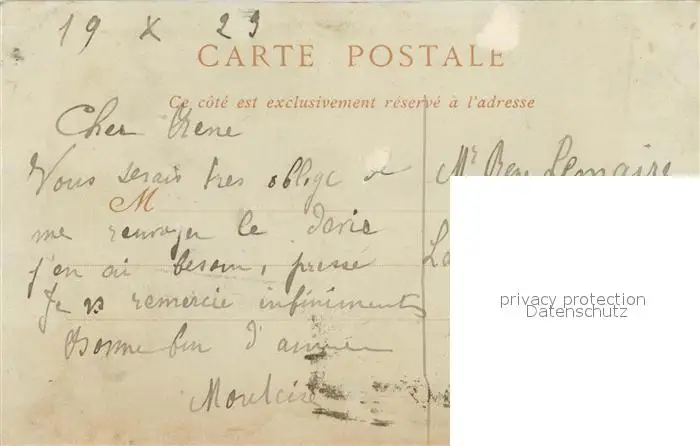 19 X 23
CARTE POSTALE
Ce côté est exclusivement réservé à l'adresse
Cher Rene
Vous serais tres oblige de
M
me renvoyer le
j'en ai besoin, pressé
Je vs remercie infiniments
Bonne fin d'année
Mr Rene Lemaire
privacy protection
Datenschutz